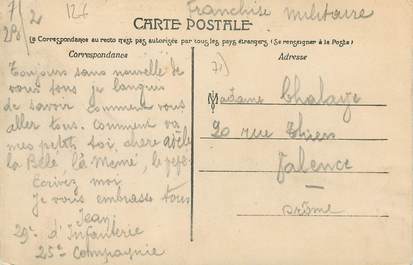 7/2
28/
127
Franchise Militaire
CARTE POSTALE
La Correspondance au recto n'est pas autorisée par tous les pays étrangers (Se renseigner à la Poste)
Correspondance
Adresse
Toujours sans nouvelle de
vous tous je langui
de savoir comment vous
aller tous. Comment va
mes petits toi, chère adèle
la Bebé la Mémé, le pépé
Ecrivez moi
Je vous embrasse tous
Jean
29e d'Infanterie
25e Compagnie
Madame Chalaye
20 rue Thiers
Valence
Drôme